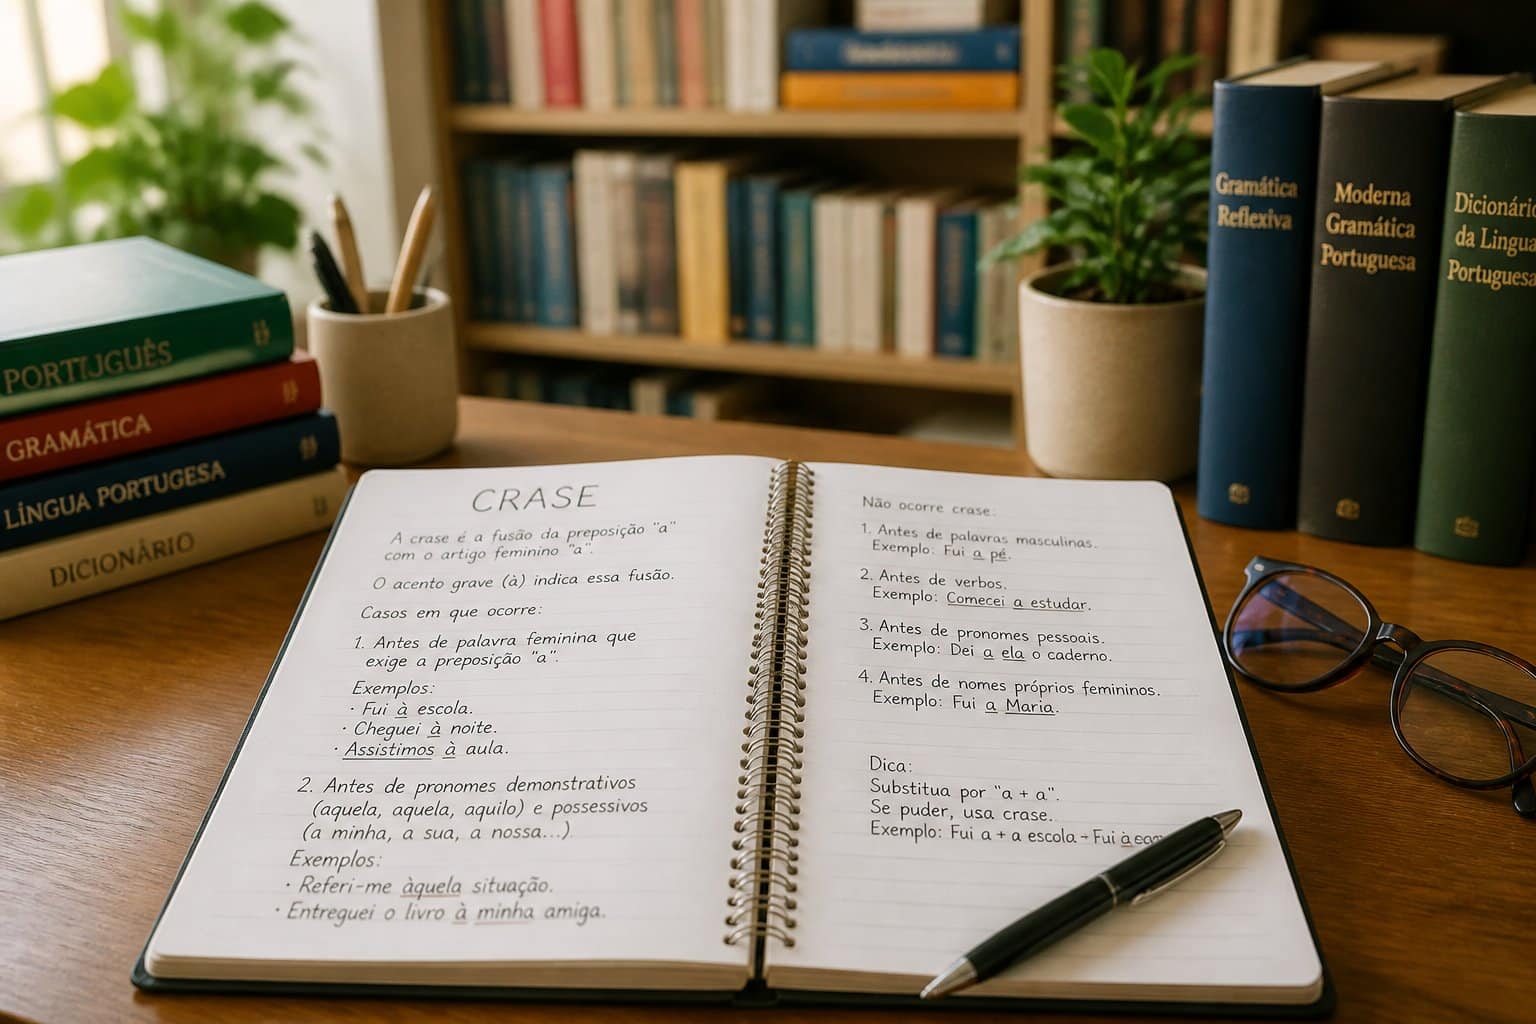 PORTUGUÊS
GRAMÁTICA
LÍNGUA PORTUGESA
DICIONÁRIO
Gramática
Reflexiva
Moderna
Gramática
Portuguesa
Dicionário
da Lingua
Portuguesa
CRASE
A crase é a fusão da preposição "a"
com o artigo feminino "a".
O acento grave (à) indica essa fusão.
Casos em que ocorre:
1. Antes de palavra feminina que
exige a preposição "a".
Exemplos:
· Fui à escola.
· Cheguei à noite.
· Assistimos à aula.
2. Antes de pronomes demonstrativos
(aquela, aquela, aquilo) e possessivos
(a minha, a sua, a nossa...)
Exemplos:
· Referi-me àquela situação.
· Entreguei o livro à minha amiga.
Não ocorre crase:
1. Antes de palavras masculinas.
Exemplo: Fui a pé.
2. Antes de verbos.
Exemplo: Comecei a estudar.
3. Antes de pronomes pessoais.
Exemplo: Dei a ela o caderno.
4. Antes de nomes próprios femininos.
Exemplo: Fui a Maria.
Dica:
Substitua por "a + a".
Se puder, usa crase.
Exemplo: Fui a + a escola - Fui à